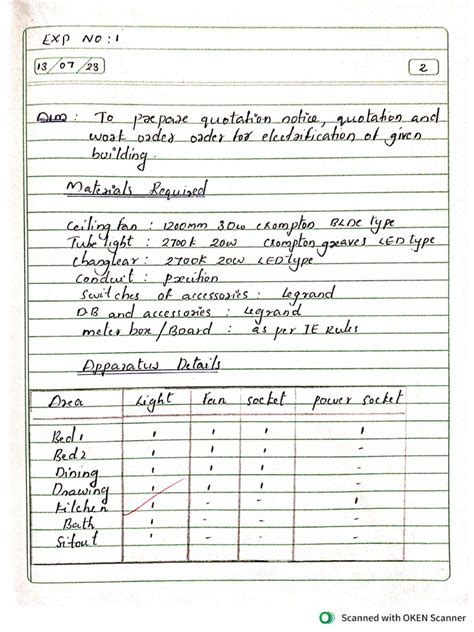 EXP NO : 1
13/07/23
2
Aim : To prepare quotation notice, quotation and
work order order for electrification of given
building.
Materials Required
Ceiling fan : 1200mm 30w crompton BLDC type
Tube light : 2700k 20w crompton greaves LED type
2700k 20w LED type
Conduit : precition
Switches of accessories : Legrand
DB and accessories : Legrand
meter box / Board : as per IE Rules
Apparatus Details
Area Light Fan socket power socket
Bed1 1 1 1 1
Bed2 1 1 1 -
Dining 1 1 1 -
Drawing 1 1 1 -
Kitchen 1 - - 1
Bath 1 - - -
Sitout 1 - - -
Scanned with OKEN Scanner